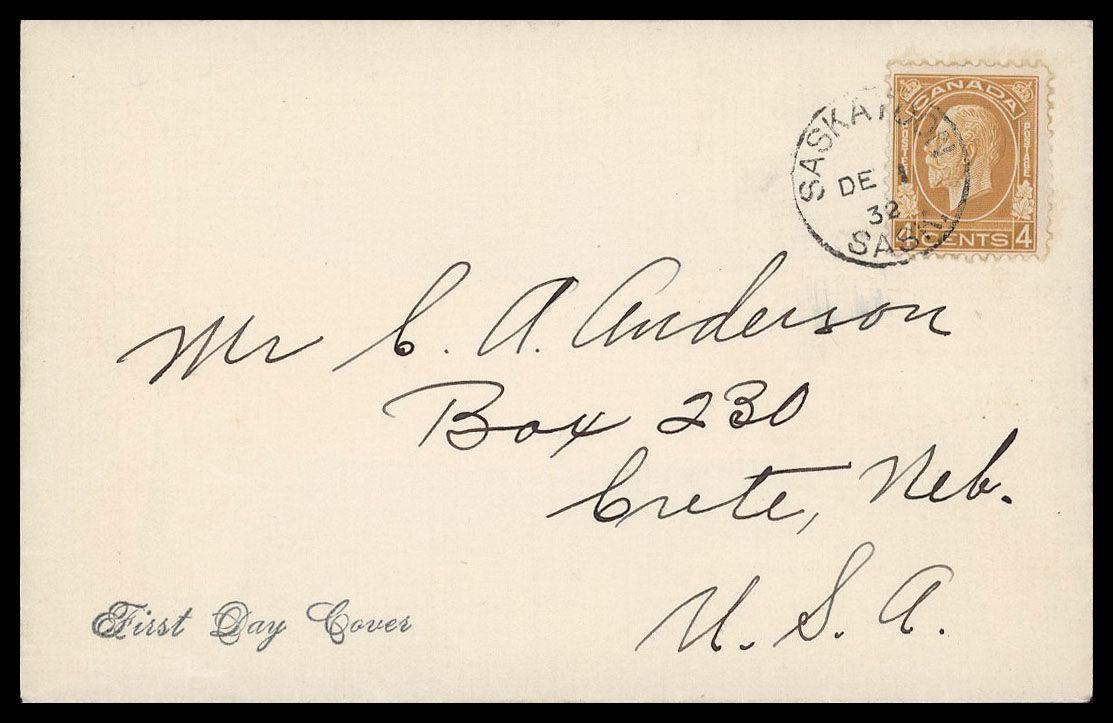 CANADA
POSTES POSTAGE
4 CENTS 4
SASKATOON
DE 1
32
SASK.
Mr C. A. Anderson
Box 230
Crete, Neb.
U. S. A.
First Day Cover